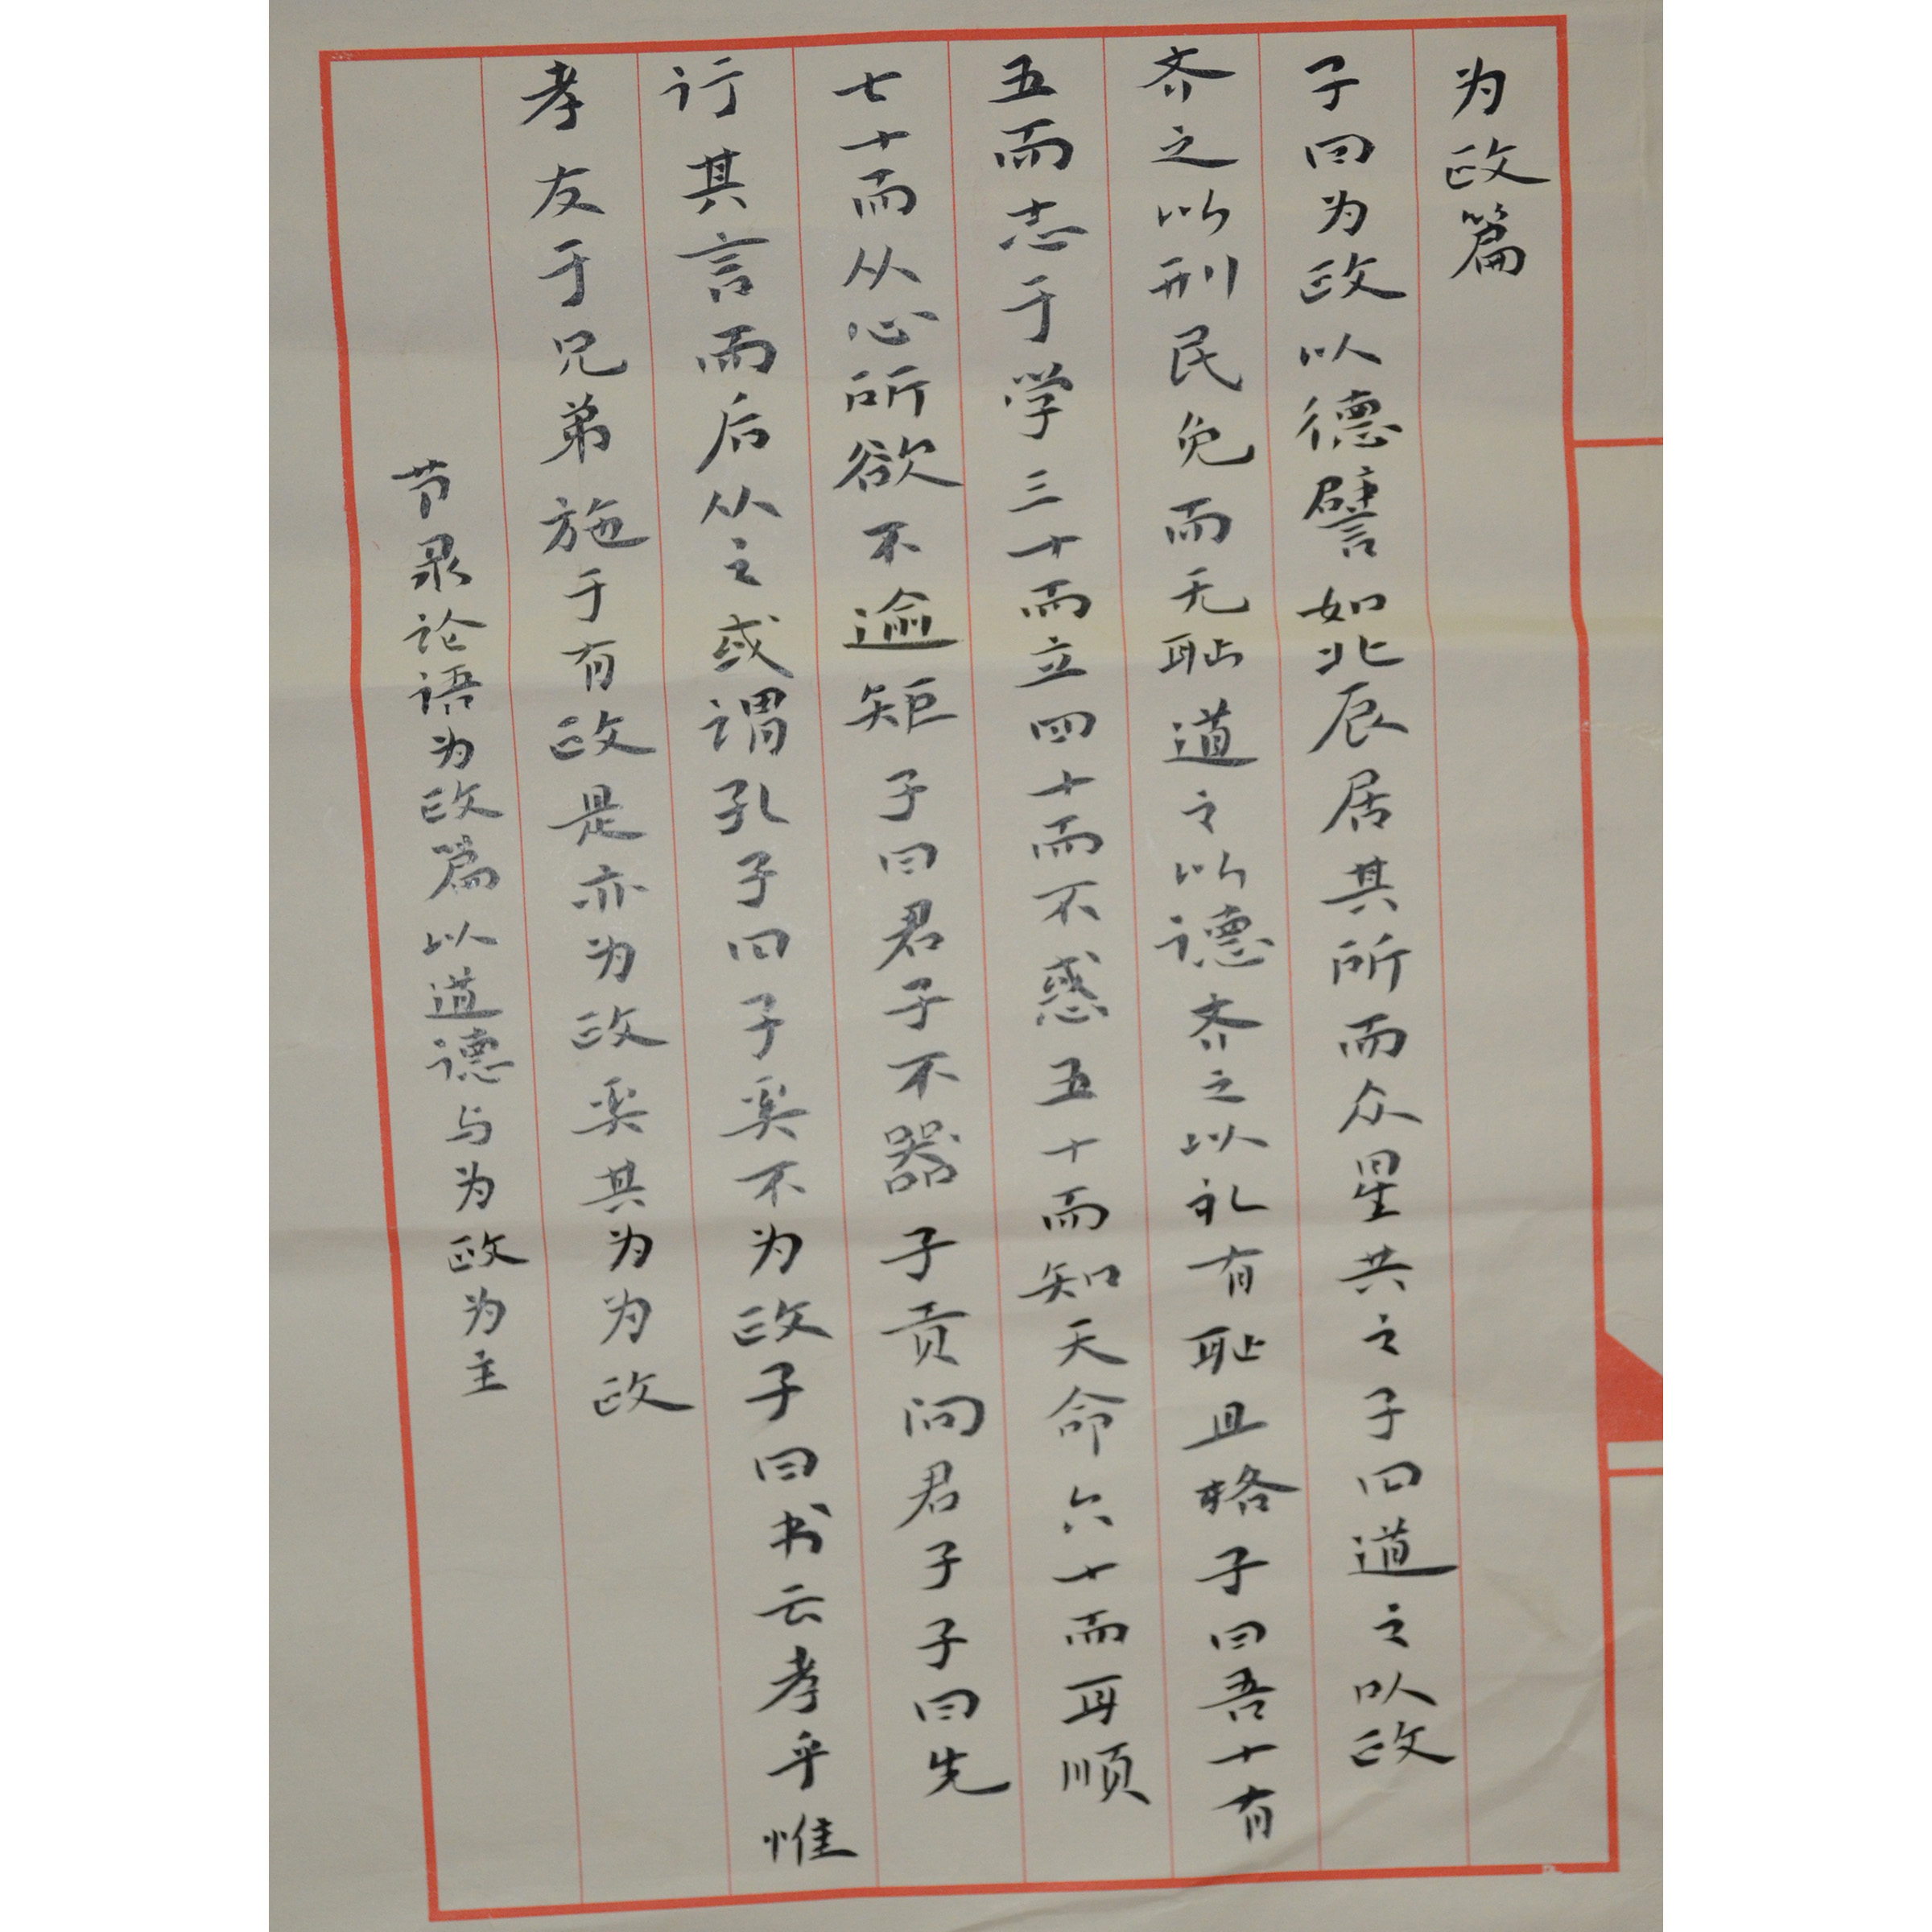 为政篇
子曰为政以德譬如北辰居其所而众星共之子曰道之以政
齐之以刑民免而无耻道之以德齐之以礼有耻且格子曰吾十有
五而志于学三十而立四十而不惑五十而知天命六十而耳顺
七十而从心所欲不逾矩子曰君子不器子贡问君子子曰先
行其言而后从之或谓孔子曰子奚不为政子曰书云孝乎惟
孝友于兄弟施于有政是亦为政奚其为为政
节录论语为政篇以道德与为政为主